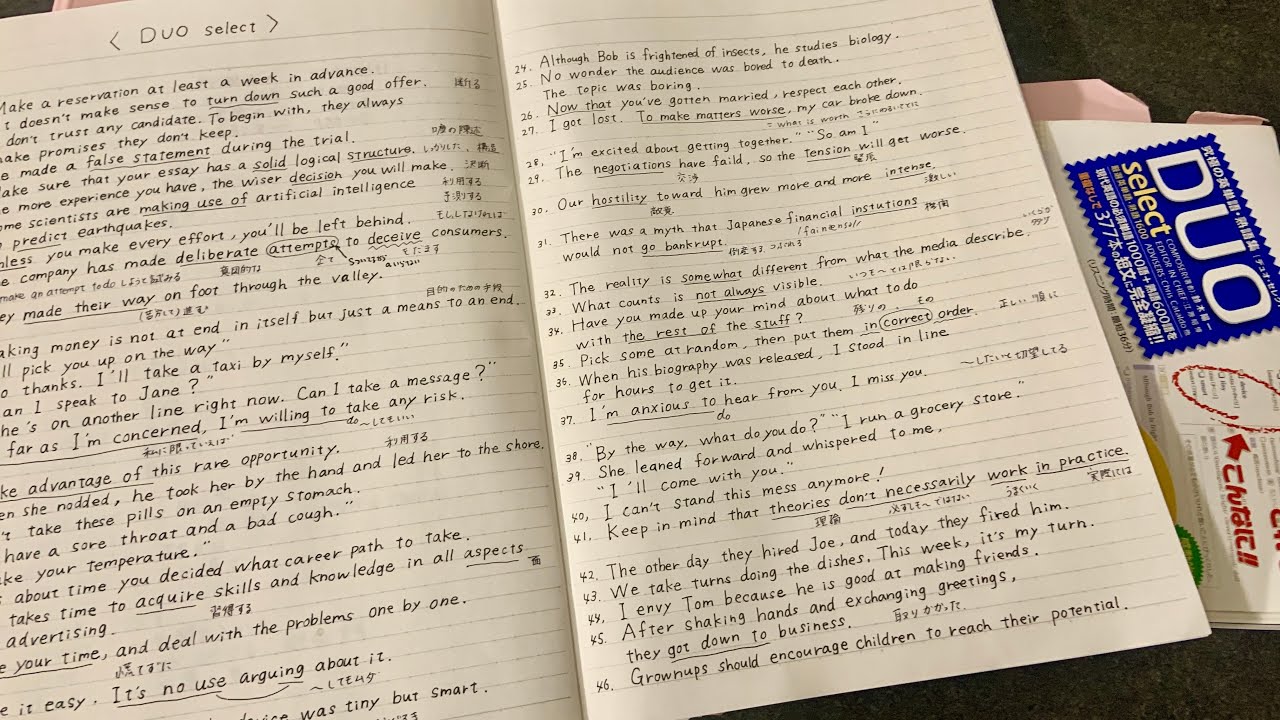 〈 DUO select 〉
Make a reservation at least a week in advance.
t doesn't make sense to turn down such a good offer.
断る
don't trust any candidate. To begin with, they always
make promises they don't keep.
e made a false statement during the trial.
嘘の陳述
Make sure that your essay has a solid logical structure.
しっかりした、構造
e more experience you have, the wiser decision you will make.
決断
ome scientists are making use of artificial intelligence
利用する
o predict earthquakes.
予測する
nless you make every effort, you'll be left behind.
e company has made deliberate attempts to deceive consumers.
make an attempt to do
意図的な
企て
だます
ey made their way on foot through the valley.
進む
目的のための手段
aking money is not at end in itself but just a means to an end.
ll pick you up on the way"
o thanks. I'll take a taxi by myself."
an I speak to Jane?"
he's on another line right now. Can I take a message?"
far as I'm concerned, I'm willing to take any risk.
私に限っていえば
do 〜してもいい
利用する
ke advantage of this rare opportunity.
en she nodded, he took her by the hand and led her to the chore.
't take these pills on an empty stomach.
have a sore throat and a bad cough."
ake your temperature."
s about time you decided what career path to take.
takes time to acquire skills and knowledge in all aspects
習得する
面
advertising.
e your time, and deal with the problems one by one.
慌てずに
e it easy. It's no use arguing about it.
〜してもムダ
device was tiny but smart.
24. Although Bob is frightened of insects, he studies biology.
25. No wonder the audience was bored to death.
The topic was boring.
26. Now that you've gotten married, respect each other.
27. I got lost. To make matters worse, my car broke down.
= what is worth
28, "I'm excited about getting together." "So am I"
29. The negotiations have faild, so the tension will get worse.
交渉
緊張
30. Our hostility toward him grew more and more intense.
敵意
激しい
31. There was a myth that Japanese financial instutions
機関
would not go bankrupt.
倒産する、つぶれる
32. The reality is somewhat different from what the media describe.
33. What counts is not always visible.
いつも〜とは限らない
34. Have you made up your mind about what to do
with the rest of the stuff?
残りの
その
正しい順に
35. Pick some at random, then put them in correct order.
36. When his biography was released, I stood in line
for hours to get it.
〜したいと切望してる
37. I'm anxious to hear from you. I miss you.
do
38. "By the way, what do you do?" "I run a grocery store."
39. She leaned forward and whispered to me,
"I'll come with you."
40, I can't stand this mess anymore!
41. Keep in mind that theories don't necessarily work in practice.
理論
必ずしも〜ではない
うまくいく
実際には
42. The other day they hired Joe, and today they fired him.
43. We take turns doing the dishes. This week, it's my turn.
44, I envy Tom because he is good at making friends.
45. After shaking hands and exchanging greetings,
they got down to business.
取りかかった
46. Grownups should encourage children to reach their potential.
究極の英単語・熟語集
DUO
select
COMPOSER(著者) 鈴木陽一
EDITOR IN CHIEF
ADVISERS Chris Cataldo 他
現代英語の必須単語1000語+熟語600語を
重複なしで377本の短文に完全凝縮!!
こんなに!!